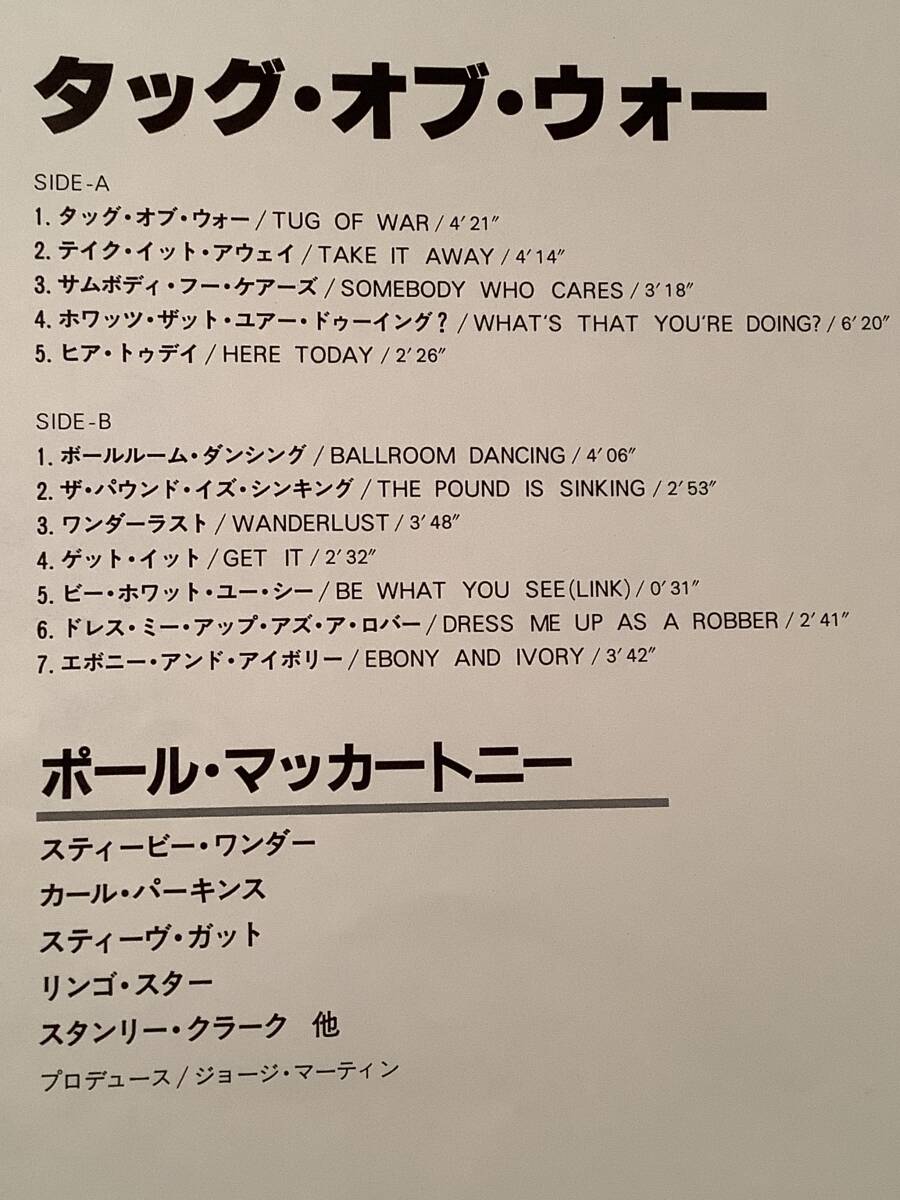 タッグ・オブ・ウォー
SIDE-A
1. タッグ・オブ・ウォー/TUG OF WAR/4′21″
2. テイク・イット・アウェイ/TAKE IT AWAY/4′14″
3. サムボディ・フー・ケアーズ/SOMEBODY WHO CARES/3′18″
4. ホワッツ・ザット・ユアー・ドゥーイング?/WHAT'S THAT YOU'RE DOING?/6′20″
5. ヒア・トゥデイ/HERE TODAY/2′26″
SIDE-B
1. ボールルーム・ダンシング/BALLROOM DANCING/4′06″
2. ザ・パウンド・イズ・シンキング/THE POUND IS SINKING/2′53″
3. ワンダーラスト/WANDERLUST/3′48″
4. ゲット・イット/GET IT/2′32″
5. ビー・ホワット・ユー・シー/BE WHAT YOU SEE(LINK)/0′31″
6. ドレス・ミー・アップ・アズ・ア・ロバー/DRESS ME UP AS A ROBBER/2′41″
7. エボニー・アンド・アイボリー/EBONY AND IVORY/3′42″
ポール・マッカートニー
スティービー・ワンダー
カール・パーキンス
スティーヴ・ガット
リンゴ・スター
スタンリー・クラーク 他
プロデュース/ジョージ・マーティン